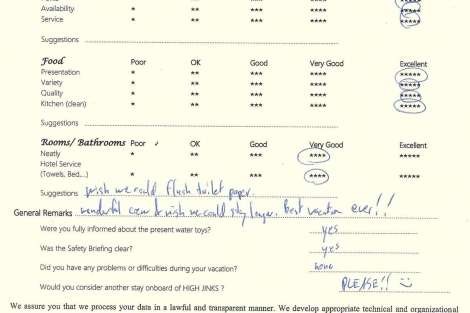 Availability * ** *** **** *****
Service * ** *** **** *****
Suggestions
Food Poor OK Good Very Good Excellent
Presentation * ** *** **** *****
Variety * ** *** **** *****
Quality * ** *** **** *****
Kitchen (clean) * ** *** **** *****
Suggestions
Rooms/ Bathrooms Poor OK Good Very Good Excellent
Neatly * ** *** **** *****
Hotel Service
(Towels, Bed....) * ** *** **** *****
Suggestions wish we could flush toilet paper.
General Remarks wonderful crew & wish we could stay longer. best vacation ever!!
Were you fully informed about the present water toys? yes
Was the Safety Briefing clear? yes
Did you have any problems or difficulties during your vacation? none
Would you consider another stay onboard of HIGH JINKS ? PLEASE!!
We assure you that we process your data in a lawful and transparent manner. We develop appropriate technical and organizational